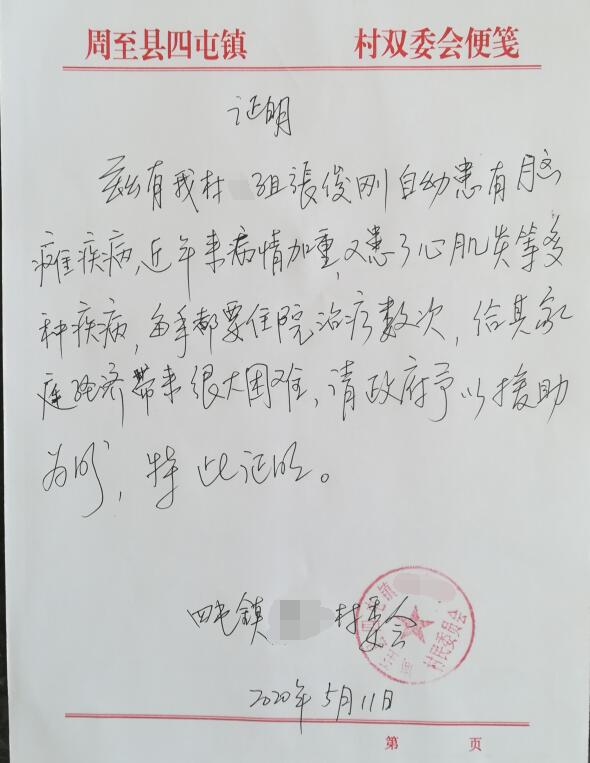 周至县四屯镇 村双委会便笺
证明
兹有我村 组張俊刚自幼患有脑
瘫疾病,近年来病情加重,又患了心肌炎等多
种疾病,每年都要住院治疗数次,给其家
庭经济带来很大困难,请政府予以援助
为盼,特此证明。
四屯鎮 村委会
村民委员会
2020年5月11日
第 页